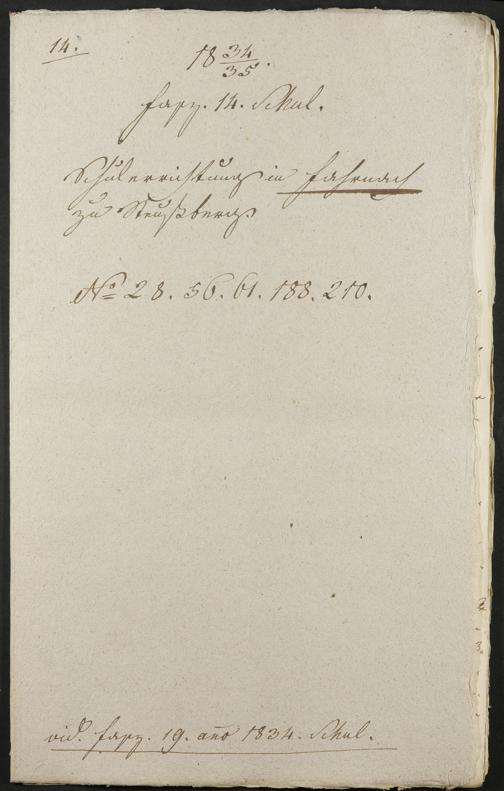 14.
18 34/35.
Fasz. 14. Schul.
Schulerrichtung in Fahrnach
zu
No 28. 56. 61. 188. 210.
vid. Fasz. 19. ano 1834. Schul.